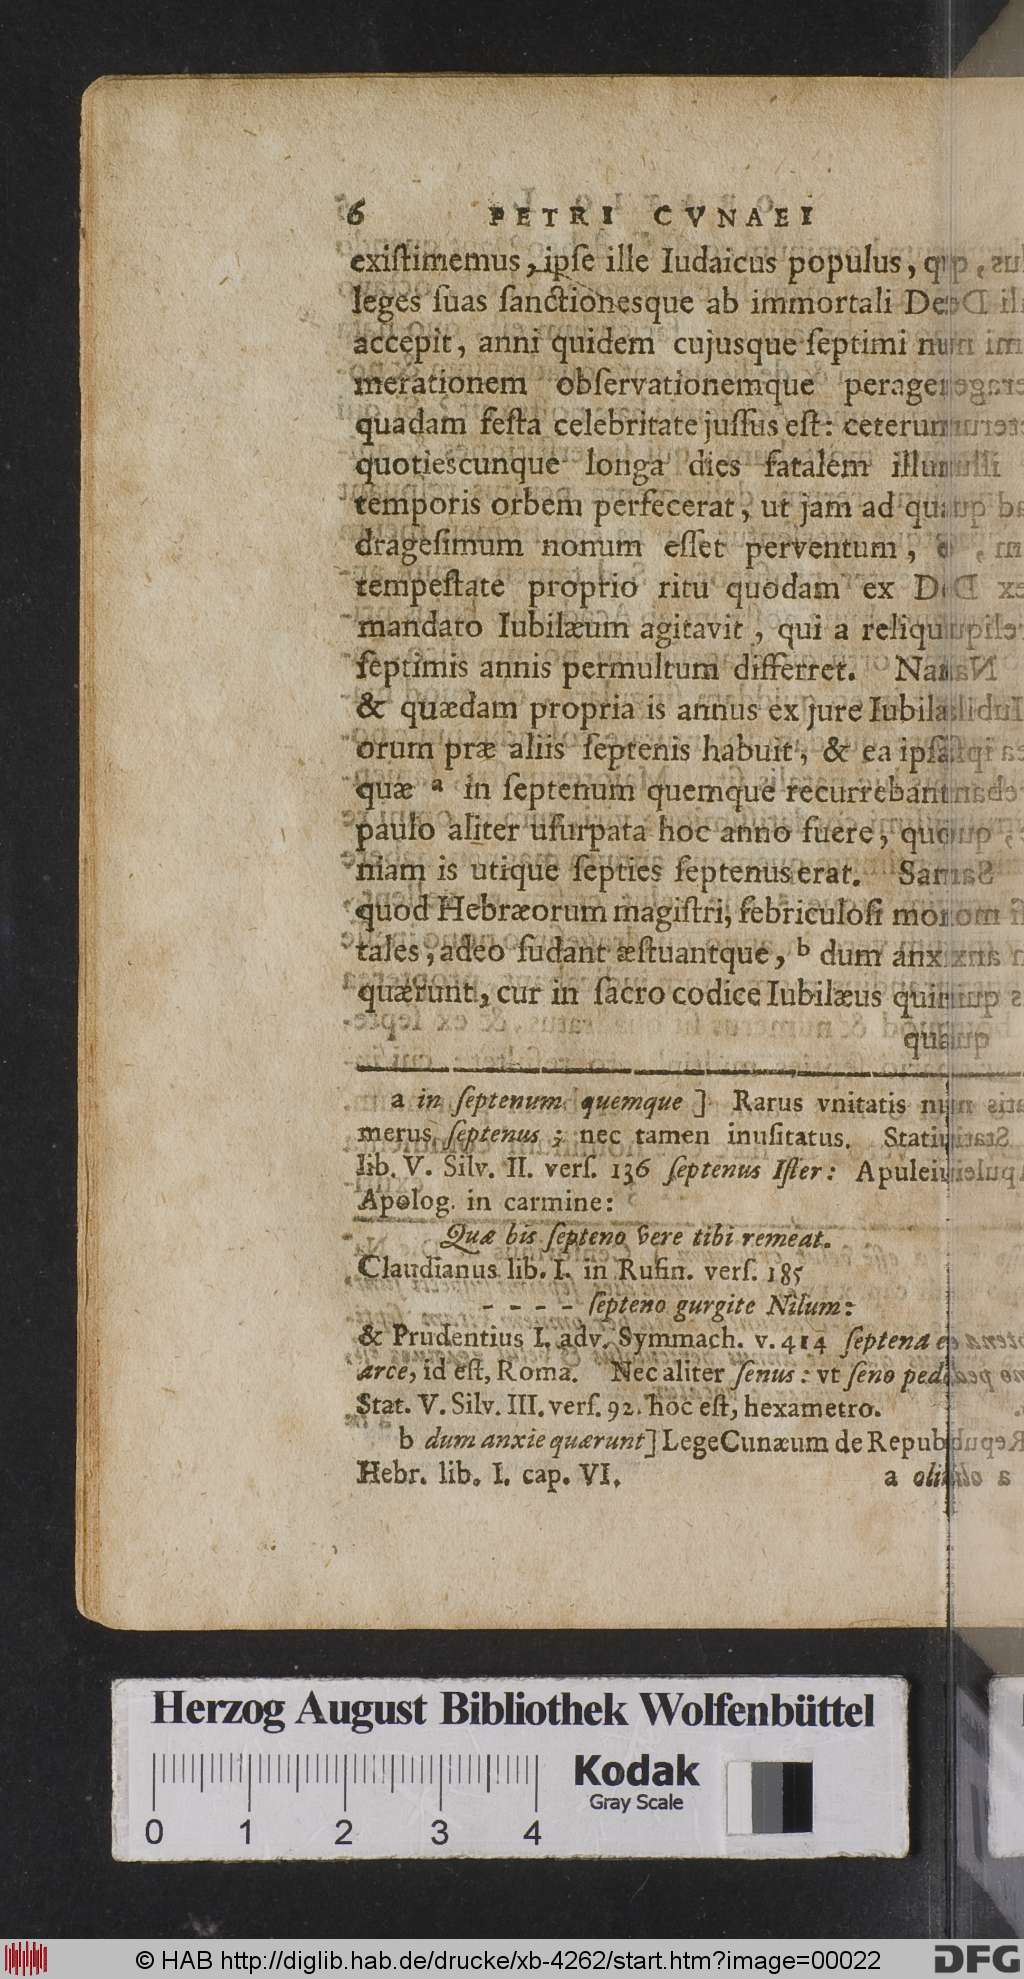 6 PETRI CVNAEI
existimemus, ipse ille Iudaicus populus, q
leges suas sanctionesque ab immortali De
accepit, anni quidem cujusque septimi nu
merationem observationemque perage
quadam festa celebritate jussus est: ceterum
quotiescunque longa dies fatalem illum
temporis orbem perfecerat, ut jam ad qua
dragesimum nonum esset perventum,
tempestate proprio ritu quodam ex D
mandato Iubilæum agitavit, qui a reliqu
septimis annis permultum differret. Nam
& quædam propria is annus ex jure Iubilæ
orum præ aliis septenis habuit, & ea ipsa
quæ a in septenum quemque recurrebant
paulo aliter usurpata hoc anno fuere, quo
niam is utique septies septenus erat. Sane
quod Hebræorum magistri, febriculosi mor
tales, adeo sudant æstuantque, b dum anx
quærunt, cur in sacro codice Iubilæus quin
qua
a in septenum quemque ] Rarus vnitatis nu
merus septenus; nec tamen inusitatus. Statiu
lib. V. Silv. II. vers. 136 septenus Ister: Apuleiu
Apolog. in carmine:
Quæ bis septeno vere tibi remeat.
Claudianus lib. I. in Rufin. vers. 185
- - - - septeno gurgite Nilum:
& Prudentius I. adv. Symmach. v. 414 septena
arce, id est, Roma. Nec aliter senus: vt seno ped
Stat. V. Silv. III. vers. 92. hoc est, hexametro.
b dum anxie quærunt] Lege Cunæum de Repub
Hebr. lib. I. cap. VI.
a oli
Herzog August Bibliothek Wolfenbüttel
Kodak
Gray Scale
0 1 2 3 4
© HAB http://diglib.hab.de/drucke/xb-4262/start.htm?image=00022
DFG